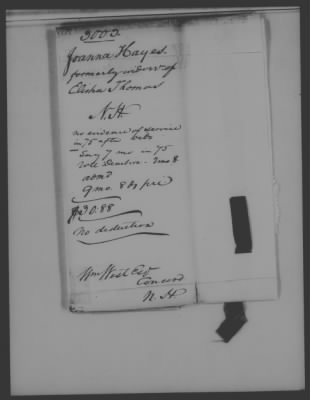 3003.
Joanna Hayes.
formerly widow of
Elisha Thomas
N.H.
no evidence of service
in 75 after
Say 7 mo in 75
2 mo 8
adm'd
9 mo. 8 ds pri
$30.88
no deduction
Wm West Esqr
Concord
N. H